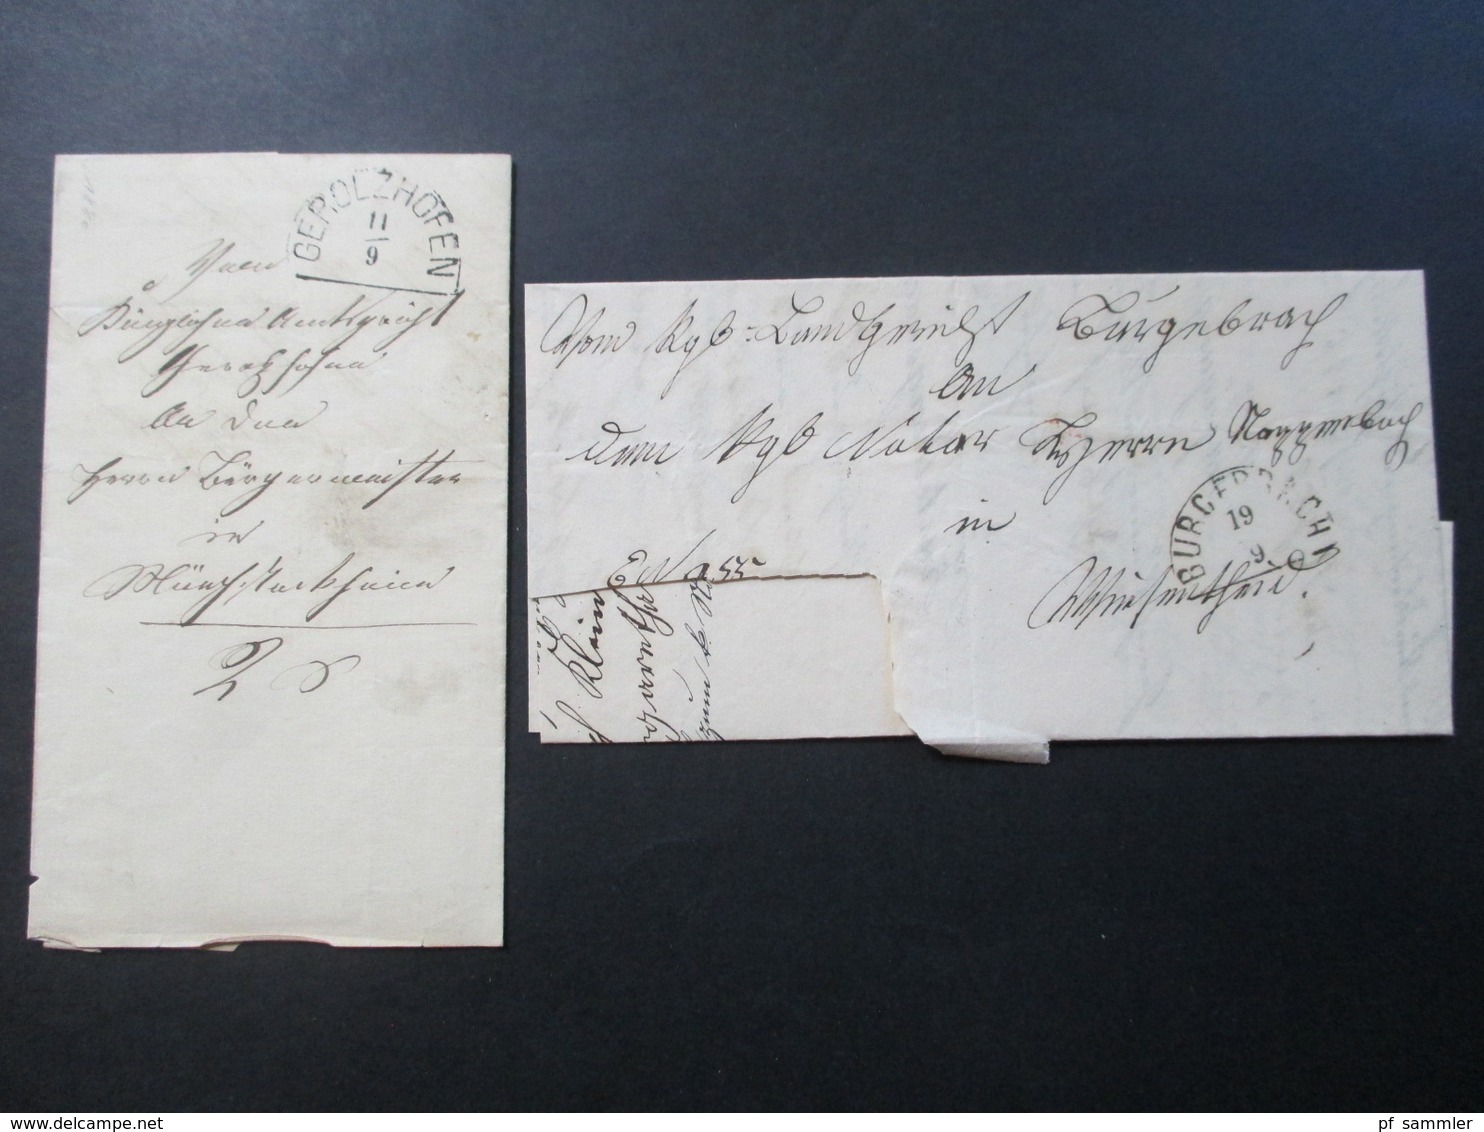 GEROLZHOFEN
11
9
Vom
Königlichen Amtsgericht
Gerolzhofen
An den
Herrn Bürgermeister
in
Mönchstockheim
2
Vom Kgl. Landgericht Burgebrach
An
den Kgl Notar Herrn
in
Wiesentheid.
BURGEBRACH
19
9
E N 255
Klein
delcampe.net
pf_sammler